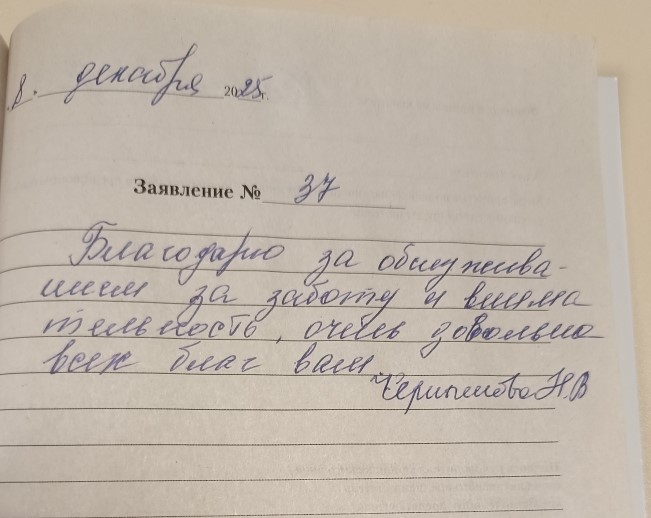 8. декабря 2025г.
Заявление № 37
Благодарю за обслужива-
нием за заботу и внима
тельность, очень довольна
всех благ вам.
Н.В